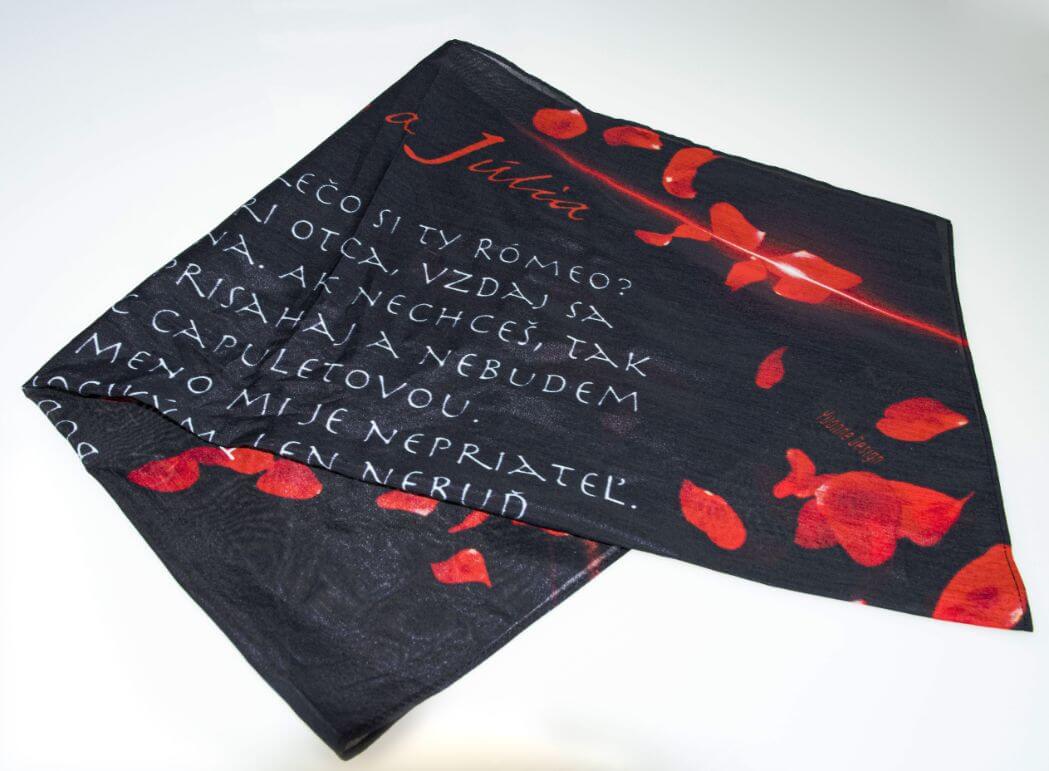 a Júlia
SI TY RÓMEO?
OTCA, VZDAJ SA
AK NECHCEŠ, TAK
PRISAHAJ A NEBUDEM
CAPULETOVOU.
MENO MI JE NEPRIATEĽ.
LEN NEBUĎ
Yvonne Design